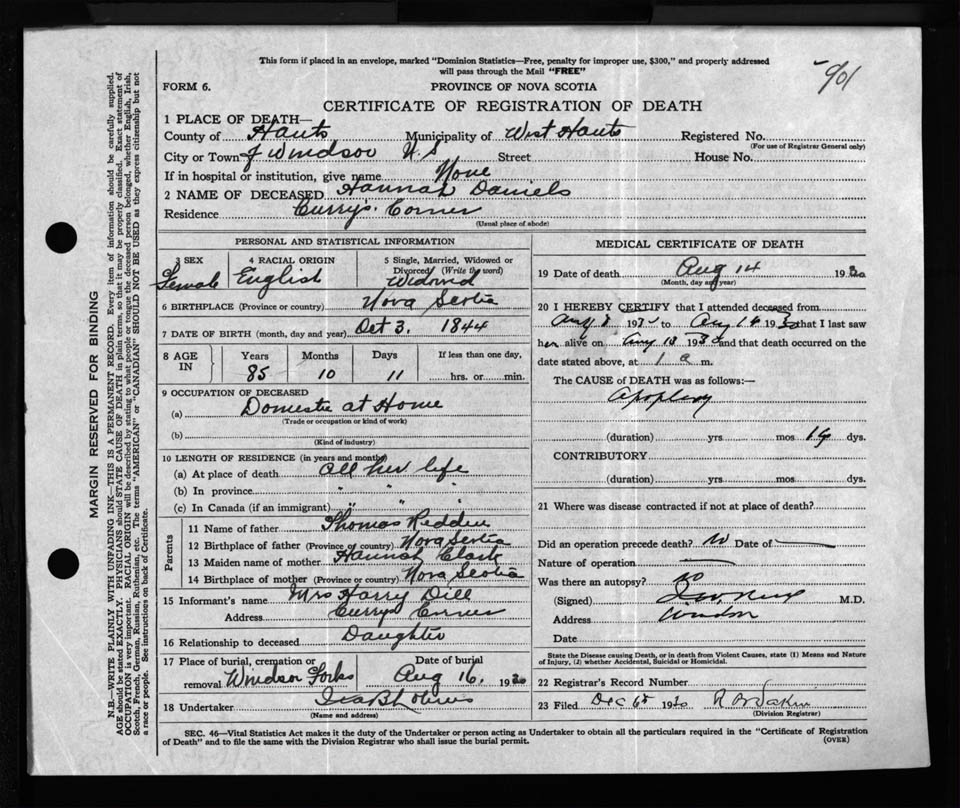 This form if placed in an envelope, marked "Dominion Statistics—Free, penalty for improper use, $300," and properly addressed
will pass through the Mail "FREE"
901
FORM 6.
PROVINCE OF NOVA SCOTIA
CERTIFICATE OF REGISTRATION OF DEATH
1 PLACE OF DEATH—
County of Hants Municipality of West Hants Registered No.
(For use of Registrar General only)
City or Town of Windsor N.S Street House No.
If in hospital or institution, give name None
2 NAME OF DECEASED Hannah Daniels
Residence Curry's Corner
(Usual place of abode)
PERSONAL AND STATISTICAL INFORMATION
3 SEX 4 RACIAL ORIGIN 5 Single, Married, Widowed or
Divorced (Write the word)
Female English Widowed
6 BIRTHPLACE (Province or country) Nova Scotia
7 DATE OF BIRTH (month, day and year) Oct 3. 1844
8 AGE IN Years Months Days If less than one day,
85 10 11 hrs. or min.
9 OCCUPATION OF DECEASED
(a) Domestic at Home
(Trade or occupation or kind of work)
(b)
(Kind of industry)
10 LENGTH OF RESIDENCE (in years and months)
(a) At place of death all her life
(b) In province " " "
(c) In Canada (if an immigrant) " " "
Parents
11 Name of father Thomas Redden
12 Birthplace of father (Province or country) Nova Scotia
13 Maiden name of mother Hannah Clark
14 Birthplace of mother (Province or country) Nova Scotia
15 Informant's name Mrs Harry Dill
Address Currys Corner
16 Relationship to deceased Daughter
17 Place of burial, cremation or removal Windsor Forks Date of burial Aug 16, 1930
18 Undertaker
(Name and address)
MEDICAL CERTIFICATE OF DEATH
19 Date of death Aug 14 1930
(Month, day and year)
20 I HEREBY CERTIFY that I attended deceased from
Aug 8 1930 to Aug 14 1930 that I last saw
her alive on Aug 13 1930 and that death occurred on the
date stated above, at 1 a m.
The CAUSE OF DEATH was as follows:—
Apoplexy
(duration) yrs. mos 14 dys.
CONTRIBUTORY
(duration) yrs. mos. dys.
21 Where was disease contracted if not at place of death?
Did an operation precede death? No Date of
Nature of operation
Was there an autopsy? no
(Signed) M.D.
Address Windsor
Date
State the Disease causing Death, or in death from Violent Causes, state (1) Means and Nature
of Injury, (2) whether Accidental, Suicidal or Homicidal.
22 Registrar's Record Number
23 Filed Dec 1930
(Division Registrar)
SEC. 46—Vital Statistics Act makes it the duty of the Undertaker or person acting as Undertaker to obtain all the particulars required in the "Certificate of Registration
of Death" and to file the same with the Division Registrar who shall issue the burial permit.
(OVER)
MARGIN RESERVED FOR BINDING
N.B.—WRITE PLAINLY WITH UNFADING INK—THIS IS A PERMANENT RECORD. Every item of information should be carefully supplied.
AGE should be stated EXACTLY. PHYSICIANS should STATE CAUSE OF DEATH in plain terms, so that it may be properly classified. Exact statement of
OCCUPATION is very important. RACIAL ORIGIN will be described by stating to what people or tongue the deceased person belonged, whether English, Irish,
Scotch, French, German, Russian, Ruthenian, etc. The terms "AMERICAN" or "CANADIAN" SHOULD NOT BE USED as they express citizenship but not
a race or people. See instructions on back of Certificate.